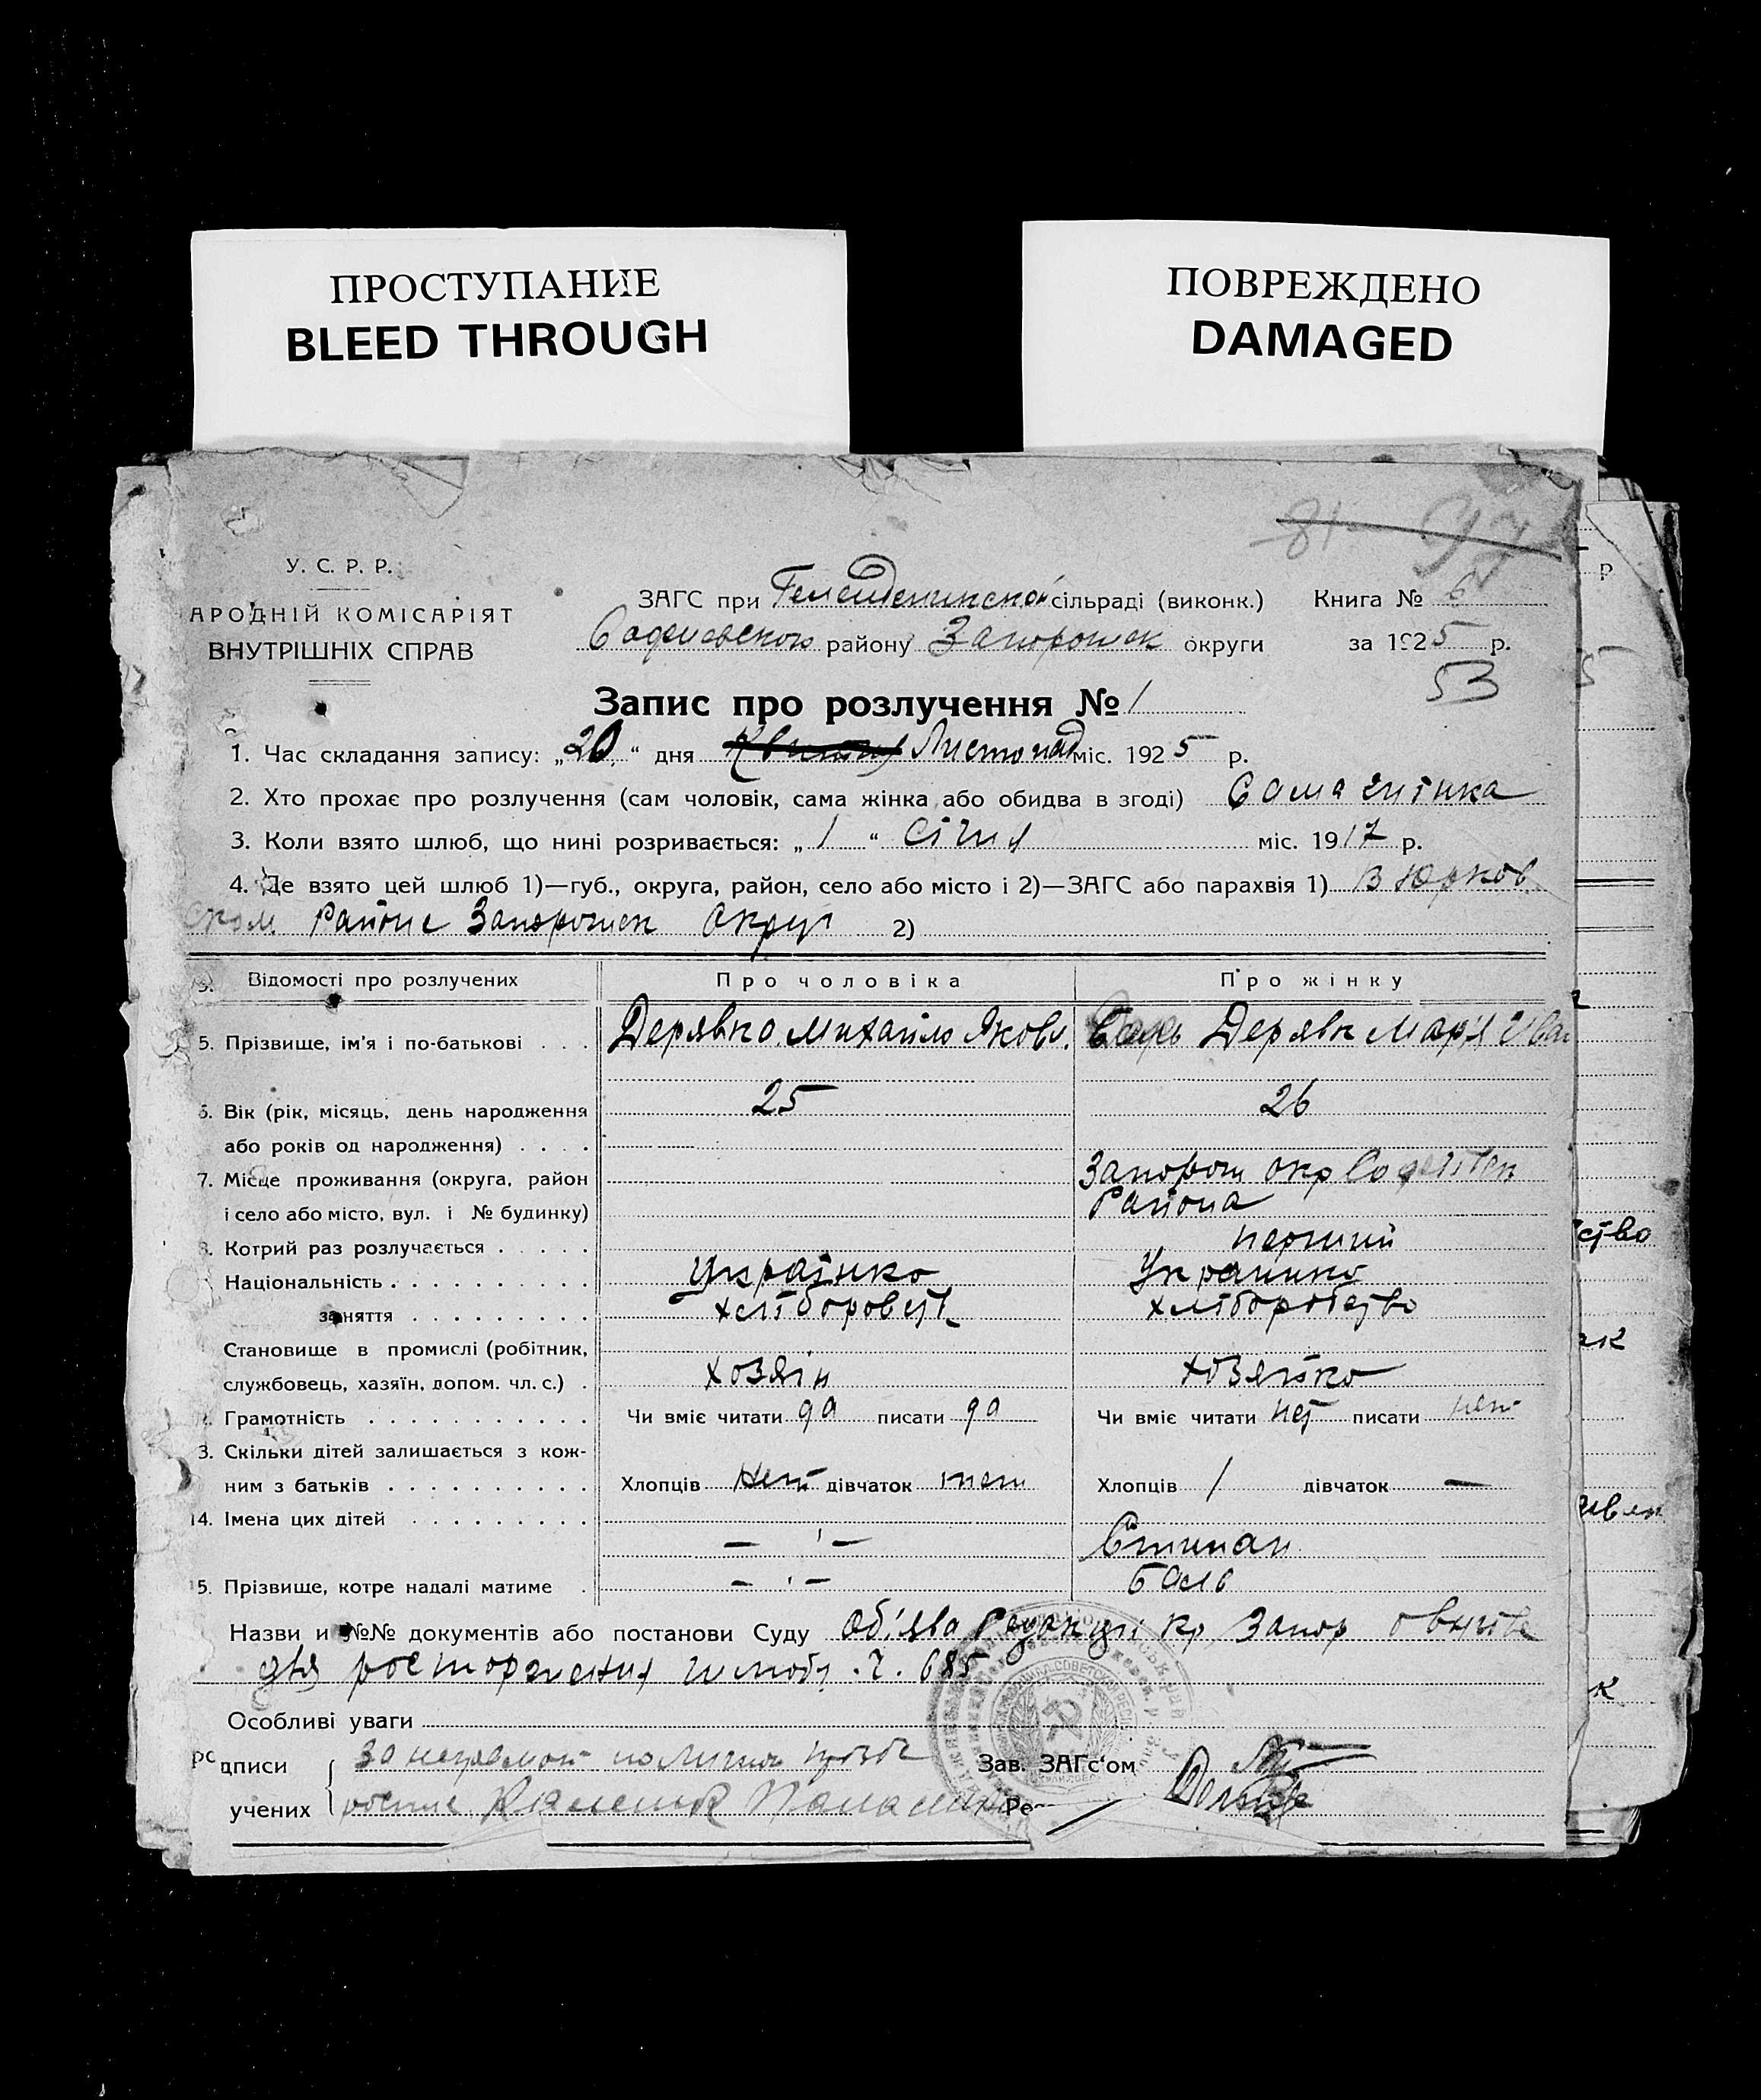 ПРОСТУПАНИЕ
BLEED THROUGH
ПОВРЕЖДЕНО
DAMAGED
81
У. С. Р. Р.
АРОДНІЙ КОМІСАРІЯТ
ВНУТРІШНІХ СПРАВ
ЗАГС при сільраді (виконк.) Книга № 6
району Запорожск округи за 1925 р.
53
Запис про розлучення № 1
1. Час складання запису: „20“ дня Листопад міс. 1925 р.
2. Хто прохає про розлучення (сам чоловік, сама жінка або обидва в згоді) Сама жінка
3. Коли взято шлюб, що нині розривається: „1“ Січня міс. 1917 р.
4. Де взято цей шлюб 1)—губ., округа, район, село або місто і 2)—ЗАГС або парахвія 1) В Юрков
ском Районе Запорожск Округ 2)
Відомості про розлучених Про чоловіка Про жінку
5. Прізвище, ім'я і по-батькові . . . Дерявко Михайло Яковл. Дерявк Мар'я Иван
6. Вік (рік, місяць, день народження 25 26
або років од народження) . . . .
7. Місце проживання (округа, район Запорож окр
і село або місто, вул. і № будинку) Района
8. Котрий раз розлучається . . . . . перший
Національність . . . . . . . . . . Українко Украинко
заняття . . . . . . . . . хліборобств хліборобство
Становище в промислі (робітник,
службовець, хазяїн, допом. чл. с.) . хозяін хозяйко
Грамотність . . . . . . . . . . . Чи вміє читати да писати да Чи вміє читати нет писати нет
3. Скільки дітей залишається з кож-
ним з батьків . . . . . . . . . . Хлопців Нет дівчаток нет Хлопців 1 дівчаток —
14. Імена цих дітей . . . . . . . . .
— ' — Стипан
15. Прізвище, котре надалі матиме . — ' —
Назви и №№ документів або постанови Суду Об'ява Редакціі Кр Запор
для росторженія шлюбу . ч. 685
Особливі уваги
дписи За неграмот
учених Зав. ЗАГс'ом